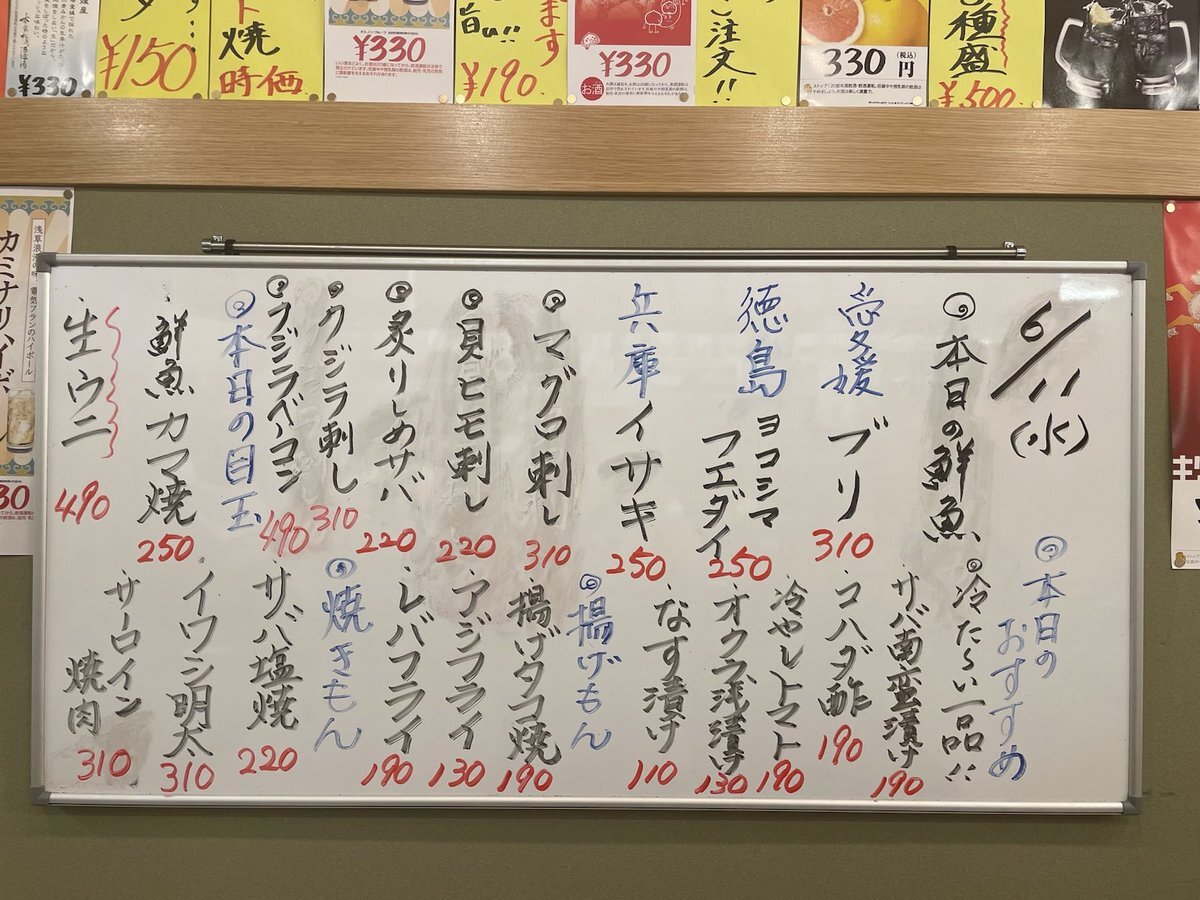 ¥330
¥150
焼
時価
¥330
旨い!!
ます
¥190
¥330
お酒
ご注文!!
330円
(税込)
種盛
¥500
浅草浪漫の味、電気ブランのハイボール
カミナリハイボ
6/11(水)
本日の鮮魚
愛媛 ブリ 310
徳島 ヨコシマフエダイ 250
兵庫 イサキ 250
マグロ刺し 310
貝ヒモ刺し 220
炙りしめサバ 220
クジラ刺し 310
クジラベーコン 490
本日の目玉
鮮魚カマ焼 250
生ウニ 490
本日のおすすめ
冷た〜い一品!!
サバ南蛮漬け 190
コハダ酢 190
冷やしトマト 190
オクラ浅漬け 130
なす漬け 110
揚げもん
揚げタコ焼 190
アジフライ 130
レバフライ 190
焼きもん
サバ塩焼 220
イワシ明太 310
サーロイン焼肉 310